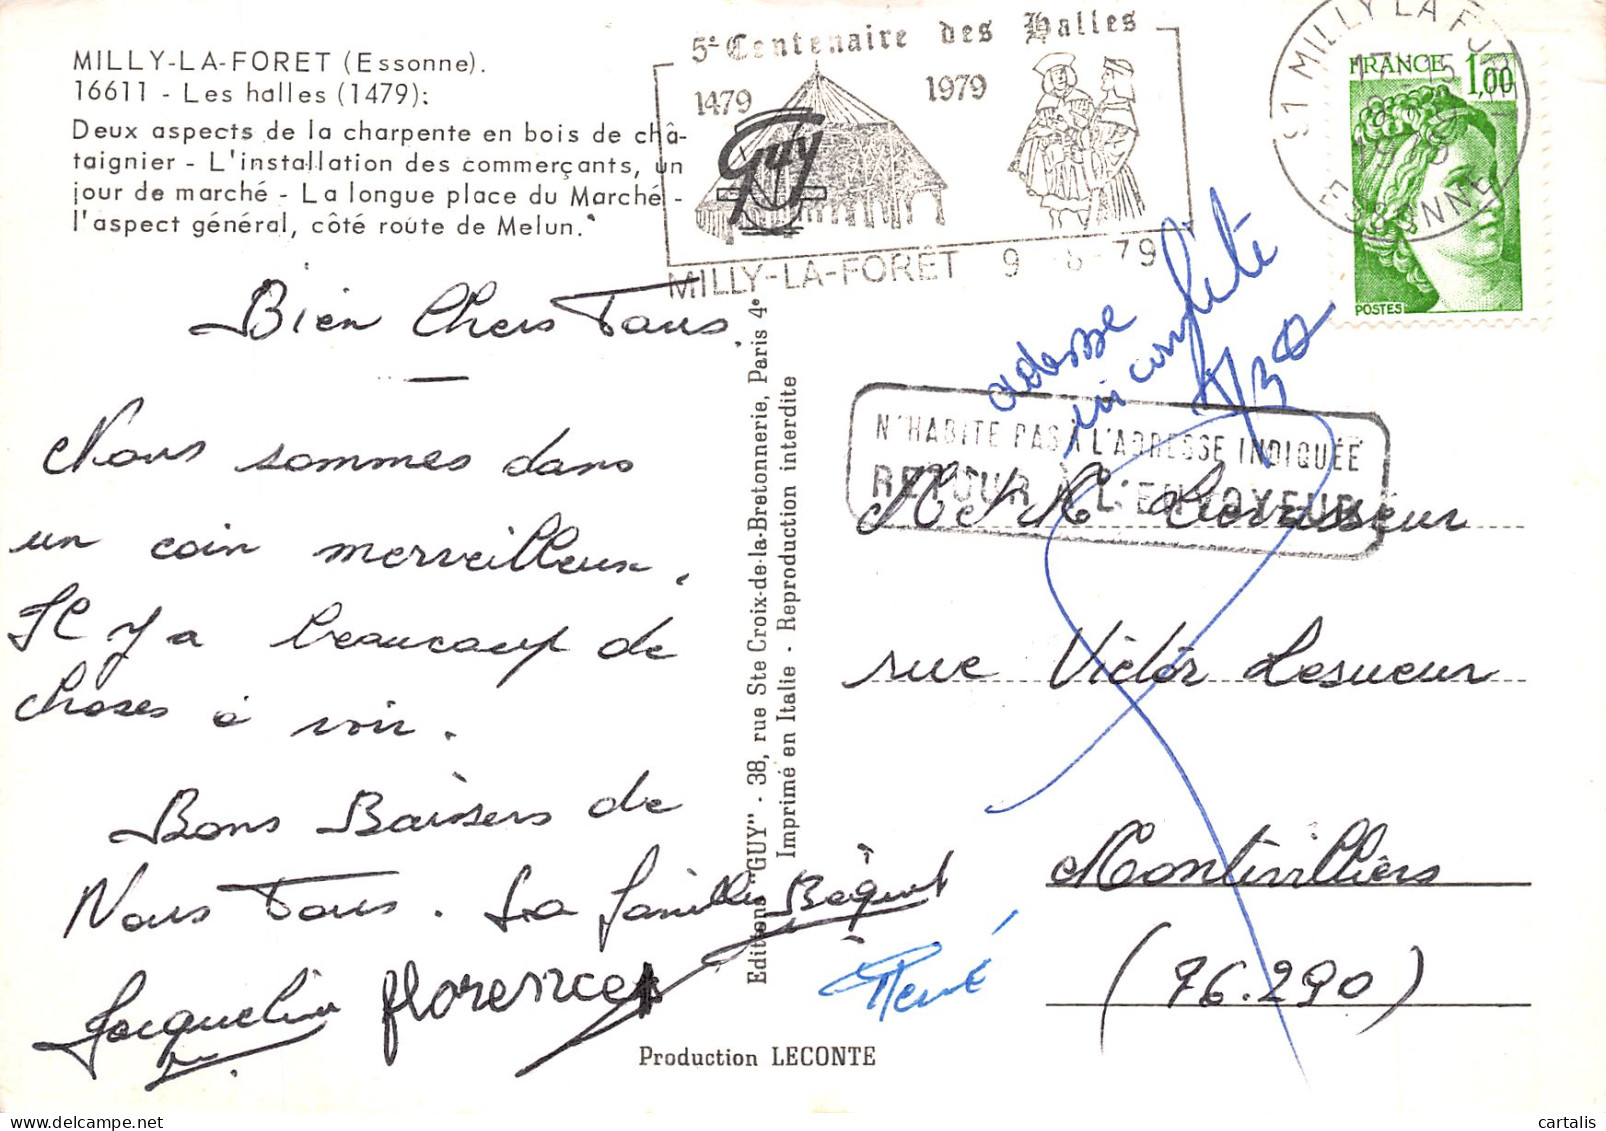 MILLY-LA-FORET (Essonne).
16611 - Les halles (1479):
Deux aspects de la charpente en bois de châ-
taignier - L'installation des commerçants, un
jour de marché - La longue place du Marché -
l'aspect général, côté route de Melun.
5e Centenaire des Halles
1479
1979
guy
MILLY-LA-FORÊT 9-8-79
91 MILLY LA FORET
ESSONNE
FRANCE 1,00
POSTES
Bien Chers Tous
Nous sommes dans
un coin merveilleux.
Il y a beaucoup de
choses à voir.
Bons Baisers de
Nous Tous. La famille Bâquet
Jacqueline florence René
Editions "GUY" - 38, rue Ste Croix-de-la-Bretonnerie, Paris 4e
Imprimé en Italie - Reproduction interdite
Production LECONTE
adresse
incomplète
N'HABITE PAS À L'ADRESSE INDIQUÉE
RETOUR À L'ENVOYEUR
rue Victor Lesueur
Montivilliers
(76.290)
cartalis